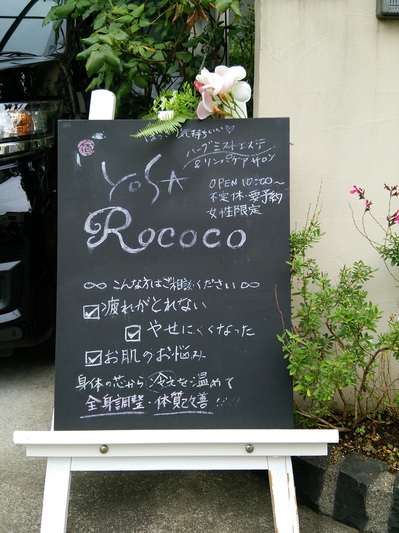 気持ちいい♡
ハーブミストエステ
&リンパケアサロン
YoSA
OPEN 10:00~
不定休・要予約
女性限定
Rococo
こんな方はご相談ください
☑疲れがとれない
☑やせにくくなった
☑お肌のお悩み
身体の芯から冷えを温めて
全身調整・体質改善!!